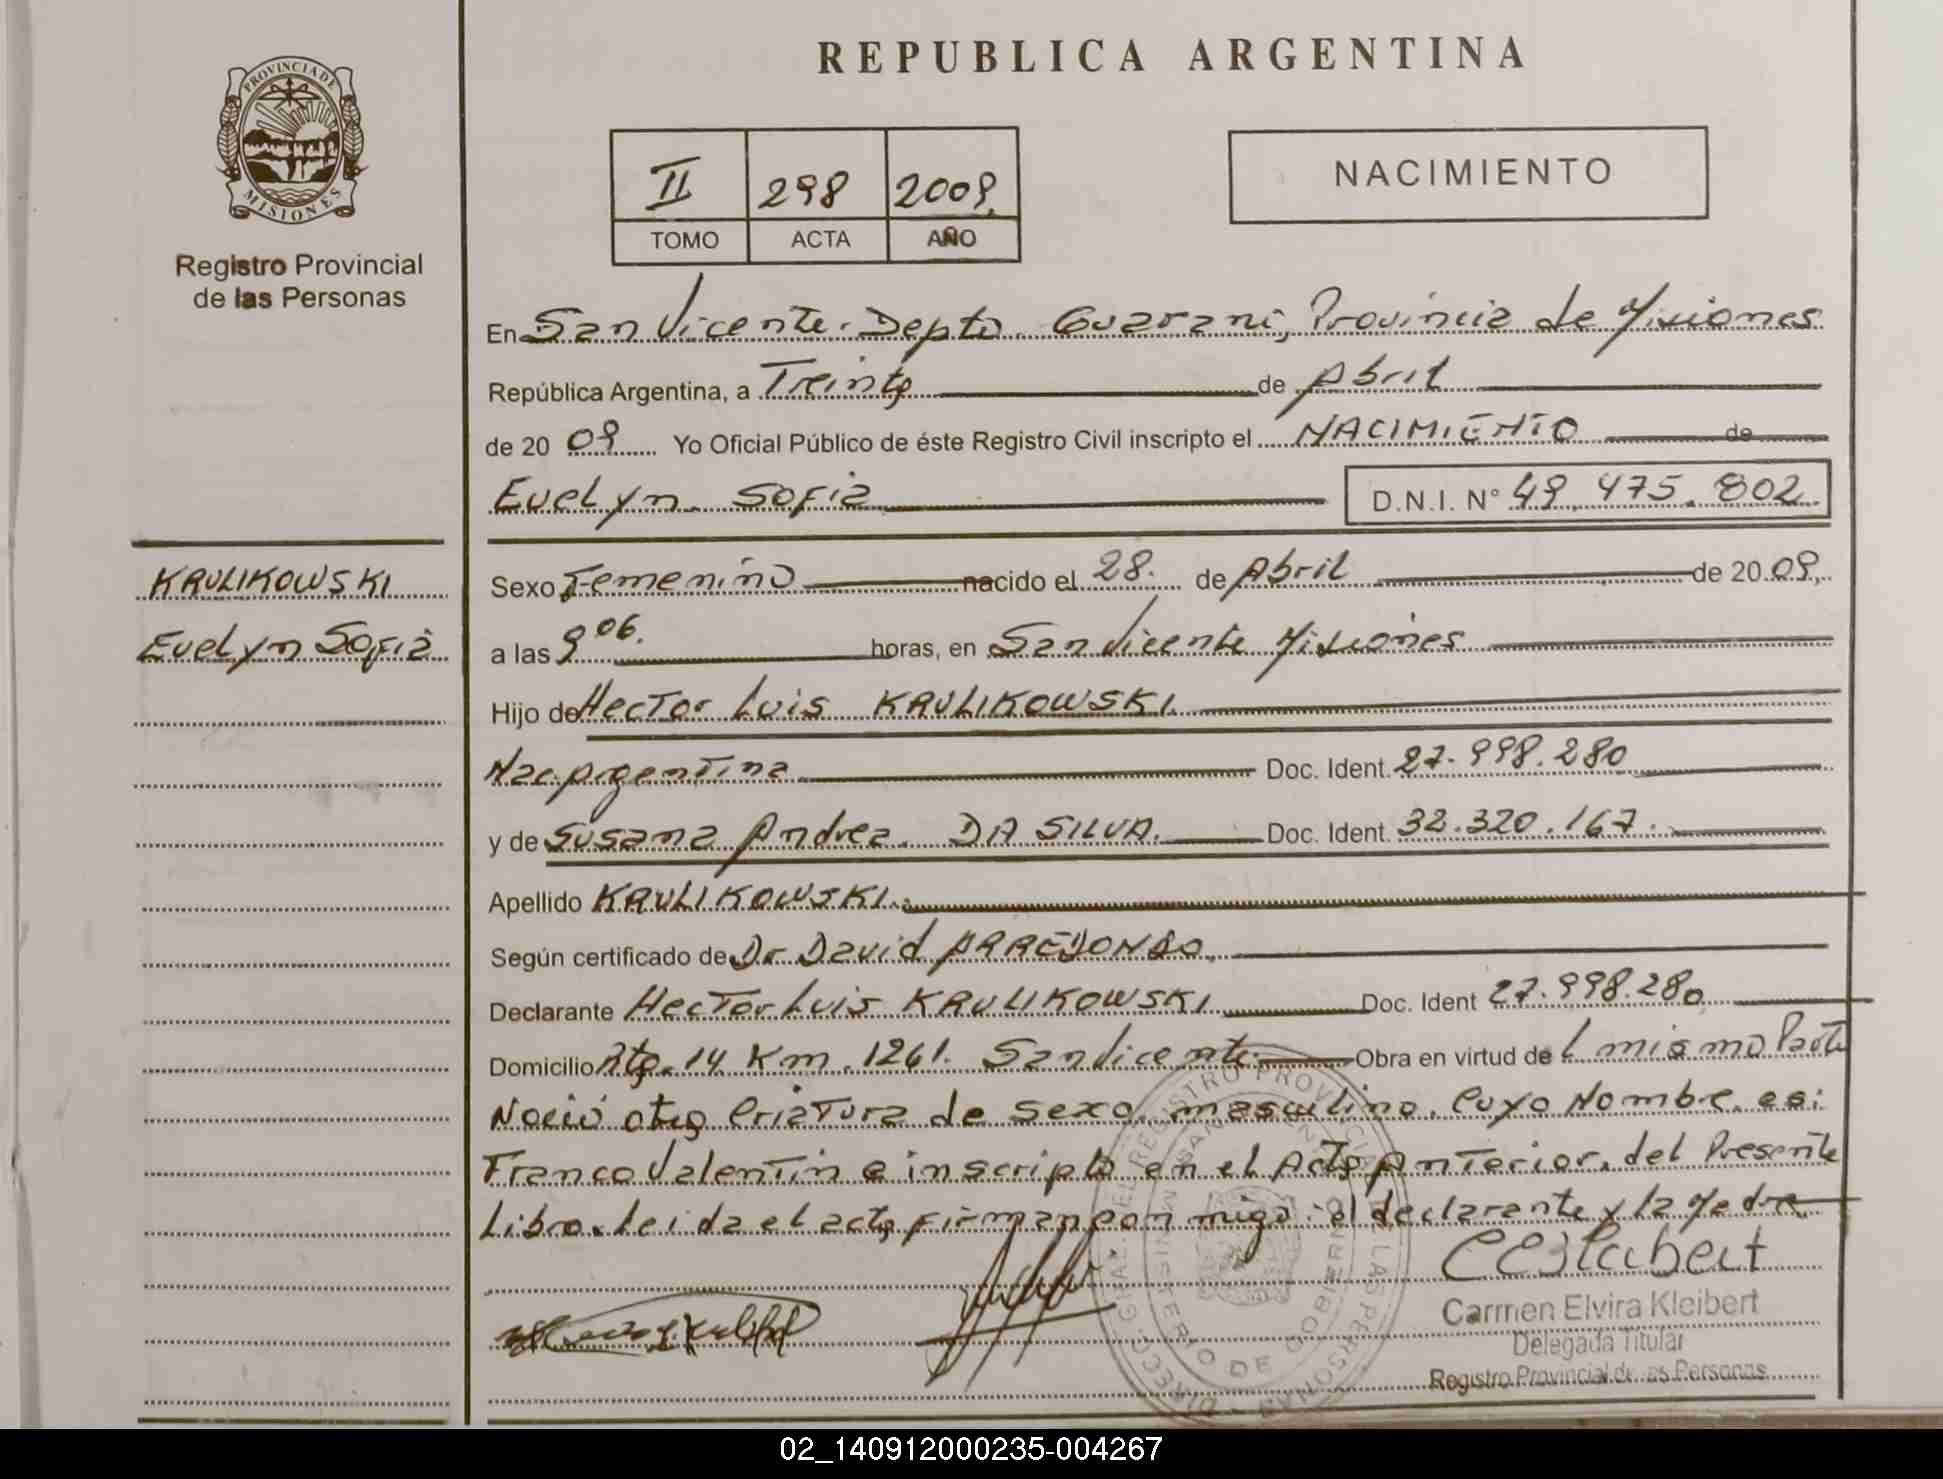 REPUBLICA ARGENTINA
PROVINCIA DE
MISIONES
Registro Provincial
de las Personas
II 298 2009.
TOMO ACTA AÑO
NACIMIENTO
En San Vicente. Depto. Guarani, Provincia de Misiones
República Argentina, a Treinta de Abril
de 20 09 Yo Oficial Público de éste Registro Civil inscripto el NACIMIENTO de
Evelyn Sofia D.N.I. N° 49.475.802.
KRULIKOWSKI
Evelyn Sofia
Sexo Femenino nacido el 28. de Abril de 20 09.
a las 9 06. horas, en San Vicente Misiones
Hijo de Hector Luis KRULIKOWSKI.
Nac Argentina Doc. Ident. 27.998.280
y de Susana Andrea DA SILVA. Doc. Ident. 32.320.167.
Apellido KRULIKOWSKI.
Según certificado de Dr David ARREDONDO.
Declarante Hector Luis KRULIKOWSKI Doc. Ident 27.998.280
Domicilio Rta. 14 Km. 1261. San Vicente Obra en virtud de l mismo Parto
Nació otra Criatura de sexo masculino. Cuyo Nombre es:
Franco Valentin e inscripto en el Acta Anterior. del Presente
Libro. Leida el acta firman con migo: el declarante y la Madre
Carmen Elvira Kleibert
Delegada Titular
Registro Provincial de las Personas
02_140912000235-004267